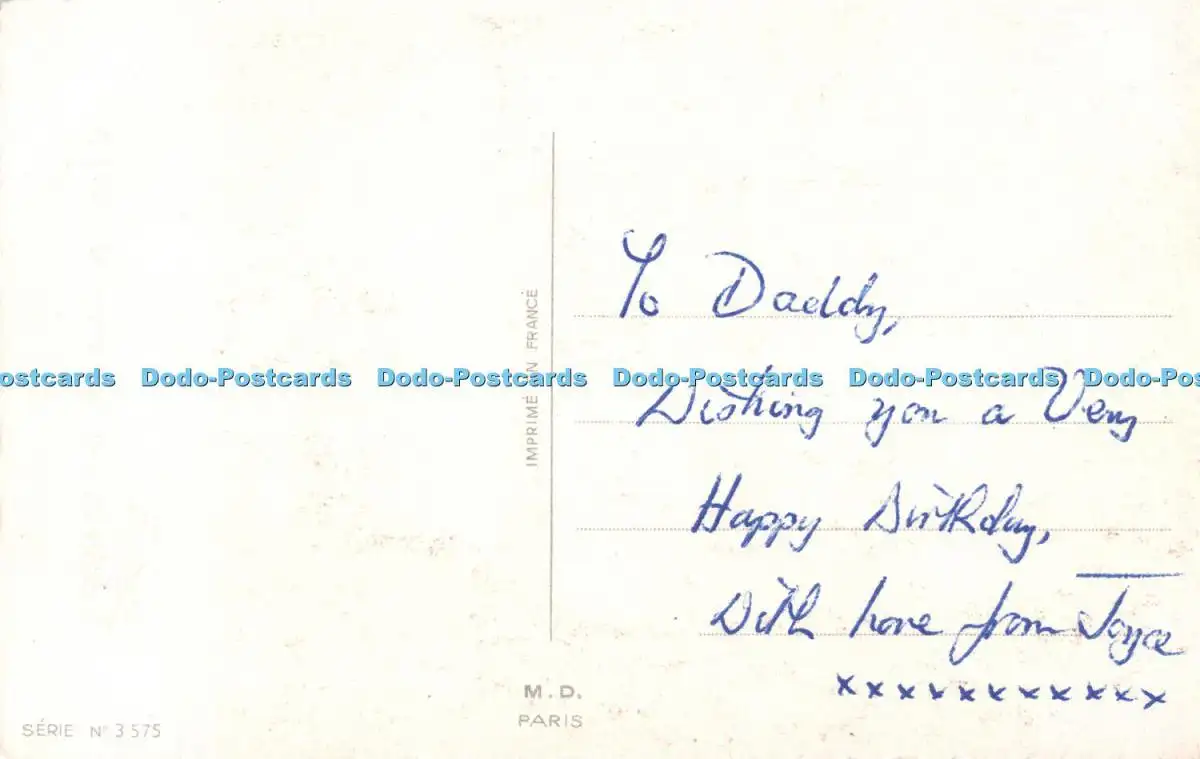 To Daddy,
ostcards Dodo-Postcards Dodo-Postcards Dodo-Postcards Dodo-Postcards Dodo-Po
Wishing you a Very
Happy Birthday,
With love from Joyce
x x x x x x x x x x x
IMPRIMÉ EN FRANCE
M.D.
PARIS
SÉRIE N° 3575